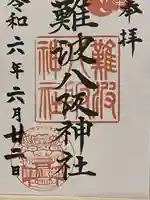 奉拝
難波八阪神社
難波
八阪
神社
令和六年六月廿二日